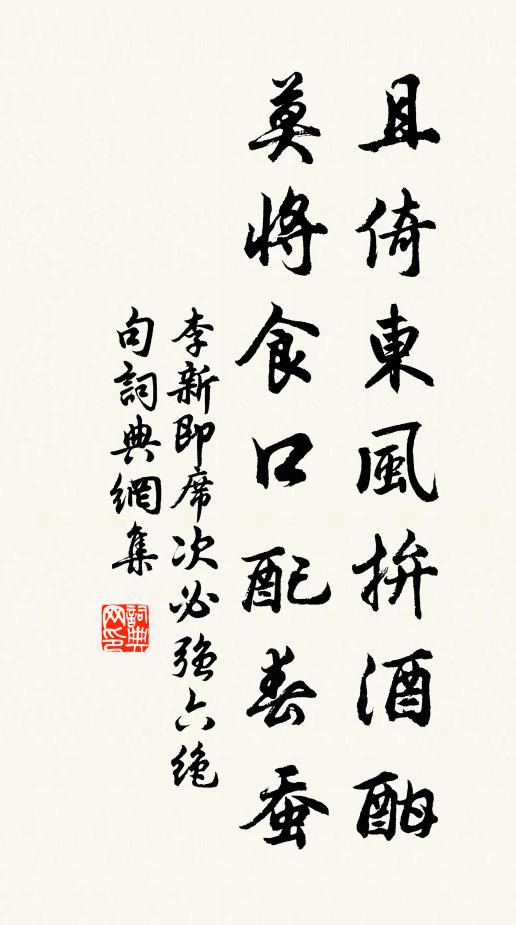 且倚東風拚酒酣
莫將食口配春蚕
李新即席次必強六绝
句詞典網集
詞典网印